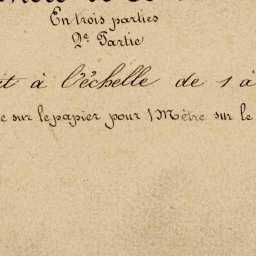 En trois parties
2e Partie
à l'échelle de 1 à
sur le papier pour 1 Mètre sur le